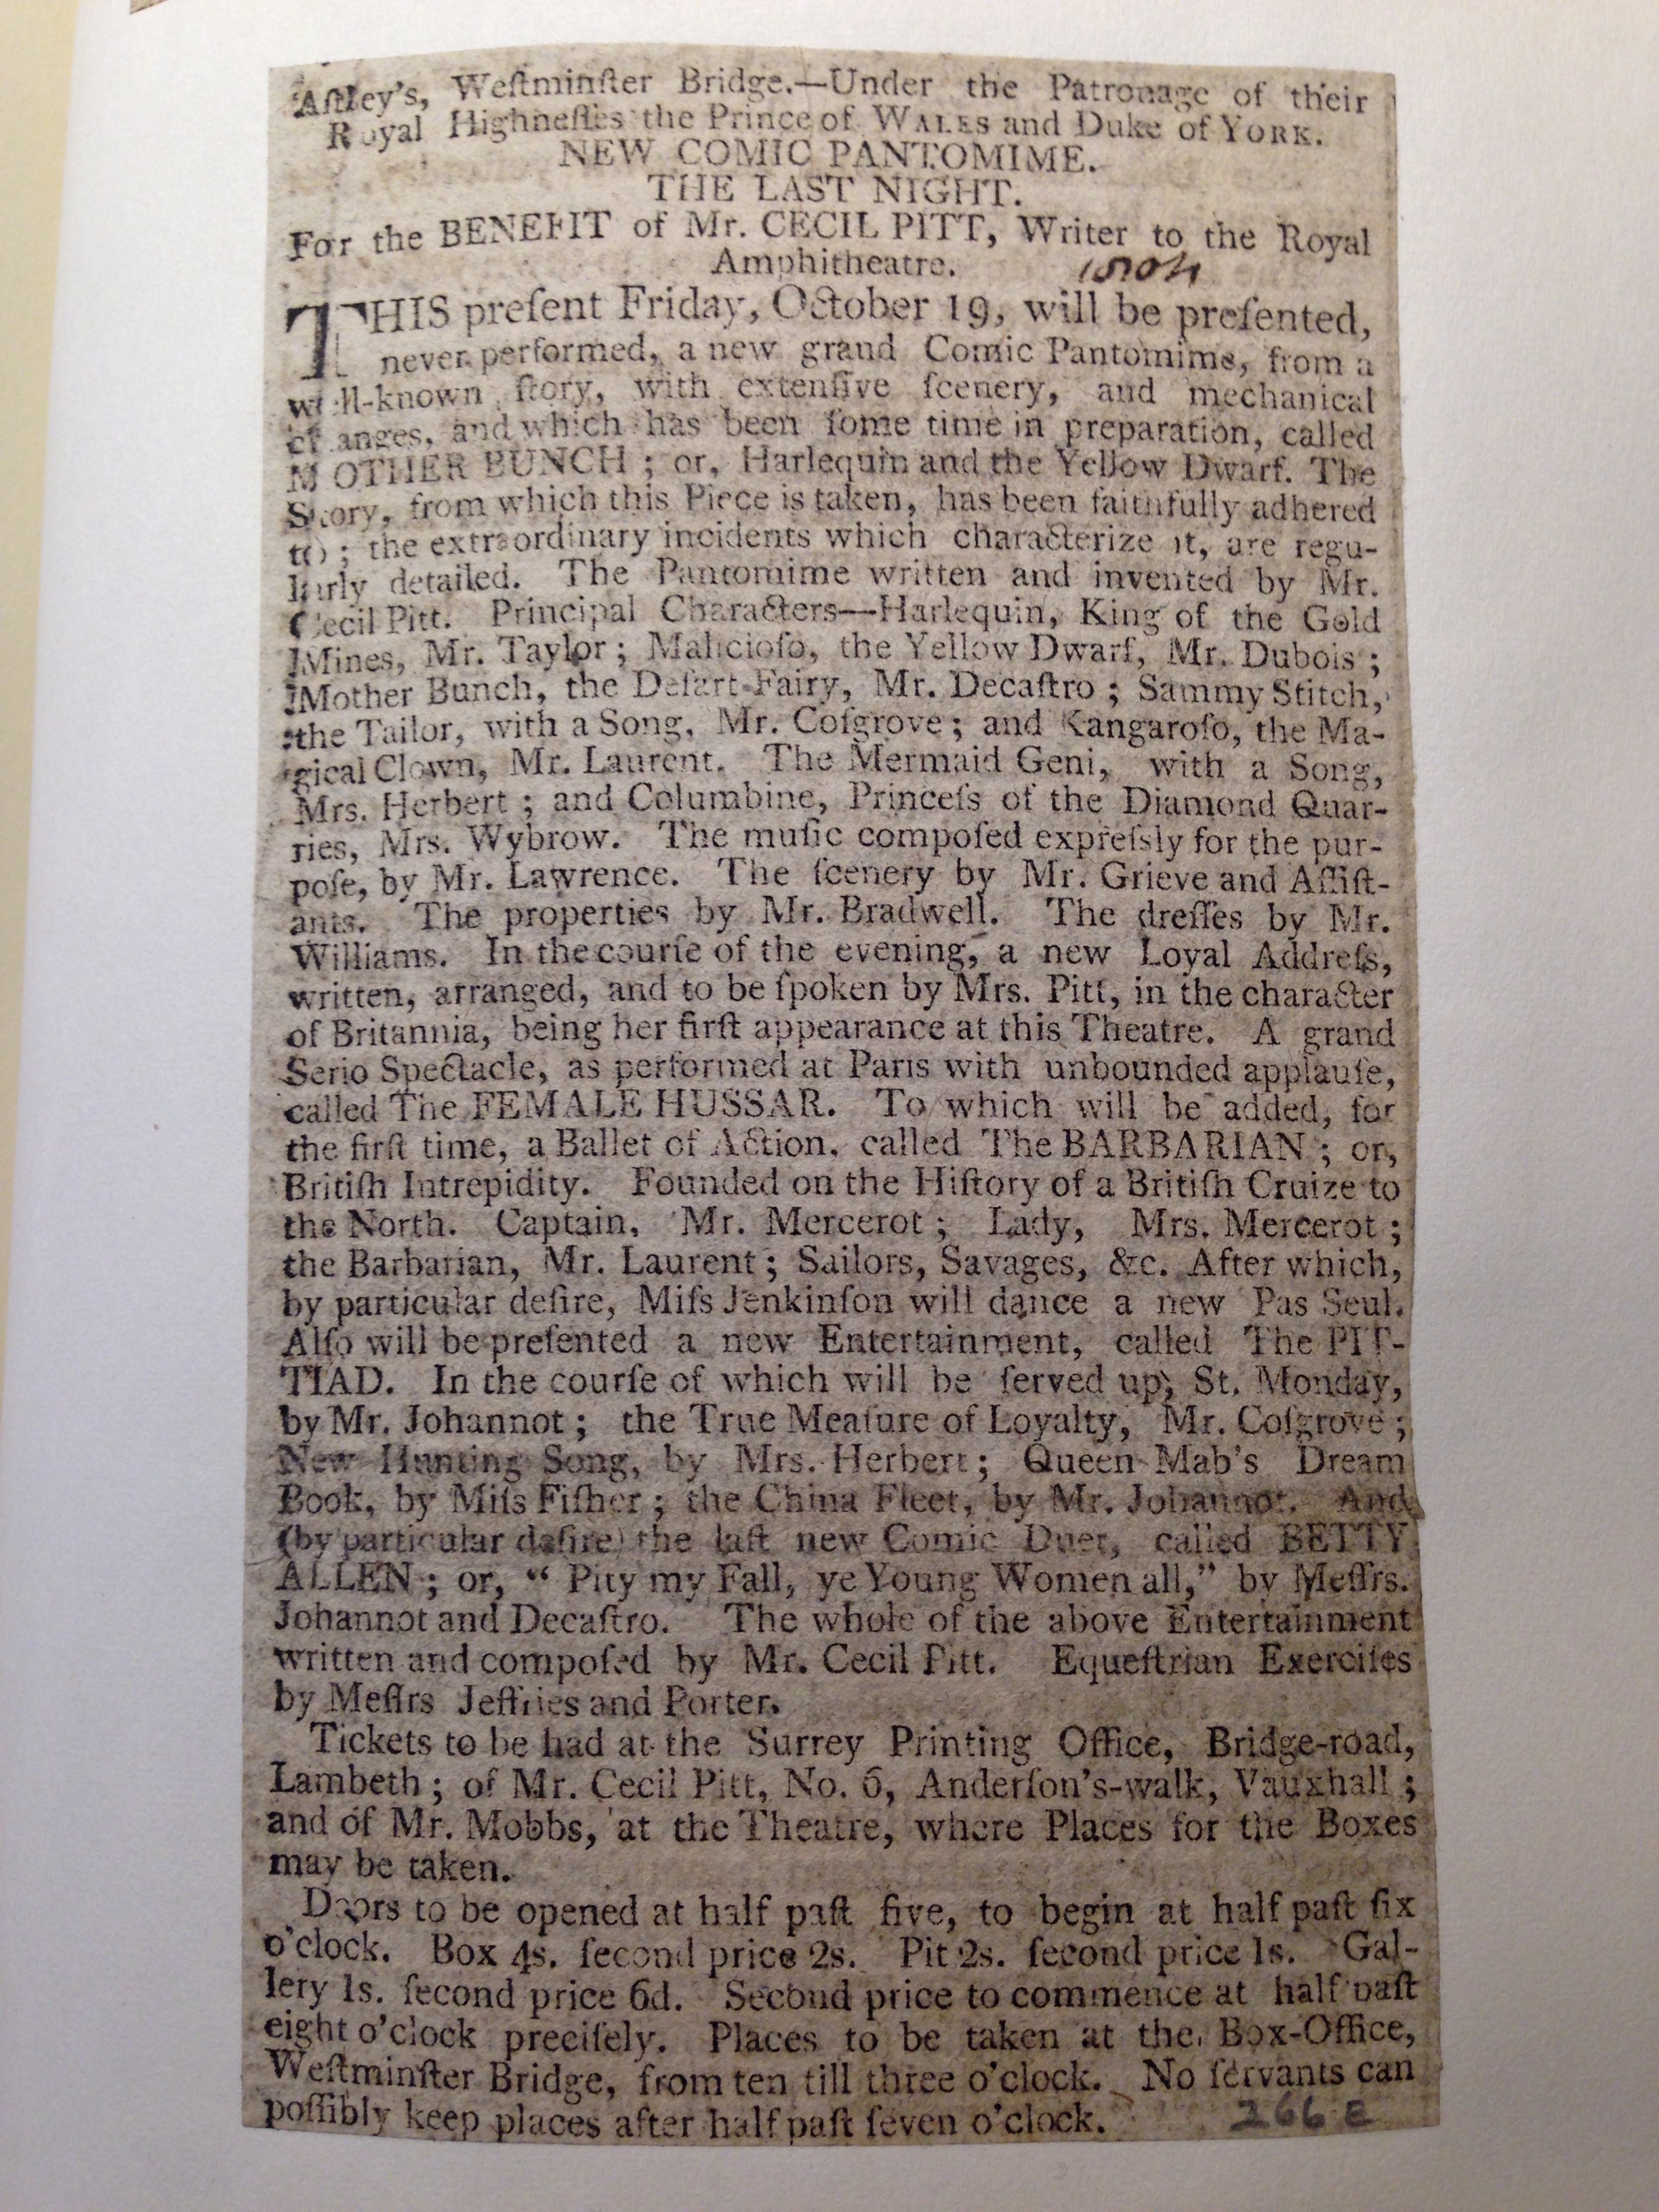 Aſtley's, Weſtminſter Bridge.—Under the Patronage of their
Royal Highneſſes the Prince of WALES and Duke of YORK.
NEW COMIC PANTOMIME.
THE LAST NIGHT.
For the BENEFIT of Mr. CECIL PITT, Writer to the Royal
Amphitheatre.
THIS preſent Friday, October 19, will be preſented,
never performed, a new grand Comic Pantomime, from a
well-known ſtory, with extenſive ſcenery, and mechanical
changes, and which has been ſome time in preparation, called
MOTHER BUNCH; or, Harlequin and the Yellow Dwarf. The
Story, from which this Piece is taken, has been faithfully adhered
to; the extraordinary incidents which characterize it, are regu-
larly detailed. The Pantomime written and invented by Mr.
Cecil Pitt. Principal Characters—Harlequin, King of the Gold
Mines, Mr. Taylor; Malicioſo, the Yellow Dwarf, Mr. Dubois;
Mother Bunch, the Deſart Fairy, Mr. Decaſtro; Sammy Stitch,
the Tailor, with a Song, Mr. Coſgrove; and Kangaroſo, the Ma-
gical Clown, Mr. Laurent. The Mermaid Geni, with a Song,
Mrs. Herbert; and Columbine, Princeſs of the Diamond Quar-
ries, Mrs. Wybrow. The muſic compoſed expreſsly for the pur-
poſe, by Mr. Lawrence. The ſcenery by Mr. Grieve and Aſſiſt-
ants. The properties by Mr. Bradwell. The dreſſes by Mr.
Williams. In the courſe of the evening, a new Loyal Addreſs,
written, arranged, and to be ſpoken by Mrs. Pitt, in the character
of Britannia, being her firſt appearance at this Theatre. A grand
Serio Spectacle, as performed at Paris with unbounded applauſe,
called The FEMALE HUSSAR. To which will be added, for
the firſt time, a Ballet of Action, called The BARBARIAN; or,
Britiſh Intrepidity. Founded on the Hiſtory of a Britiſh Cruize to
the North. Captain, Mr. Mercerot; Lady, Mrs. Mercerot;
the Barbarian, Mr. Laurent; Sailors, Savages, &c. After which,
by particular deſire, Miſs Jenkinſon will dance a new Pas Seul.
Alſo will be preſented a new Entertainment, called The PIT-
TIAD. In the courſe of which will be ſerved up, St. Monday,
by Mr. Johannot; the True Meaſure of Loyalty, Mr. Coſgrove;
New Hunting Song, by Mrs. Herbert; Queen Mab's Dream
Book, by Miſs Fiſher; the China Fleet, by Mr. Johannot. And
(by particular deſire) the laſt new Comic Duet, called BETTY
ALLEN; or, "Pity my Fall, ye Young Women all," by Meſſrs.
Johannot and Decaſtro. The whole of the above Entertainment
written and compoſed by Mr. Cecil Pitt. Equeſtrian Exerciſes
by Meſſrs Jeffries and Porter.
Tickets to be had at the Surrey Printing Office, Bridge-road,
Lambeth; of Mr. Cecil Pitt, No. 6, Anderſon's-walk, Vauxhall;
and of Mr. Mobbs, at the Theatre, where Places for the Boxes
may be taken.
Doors to be opened at half paſt five, to begin at half paſt ſix
o'clock. Box 4s. ſecond price 2s. Pit 2s. ſecond price 1s. Gal-
lery 1s. ſecond price 6d. Second price to commence at half paſt
eight o'clock preciſely. Places to be taken at the Box-Office,
Weſtminſter Bridge, from ten till three o'clock. No ſervants can
poſſibly keep places after half paſt ſeven o'clock.
266 E